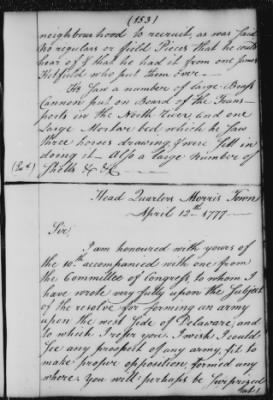 (153)
neighbourhood to recruit, as was said
No regulars or field Pieces that he could
hear of & that he had it from one James
Hetfield who put them over —
He Saw a number of large Brass
Cannon put on Board of the Trans-
ports in the North River, and one
Large Mortar bed which he Saw
three horses drawing & were
doing it — Also a Large Number of
Shells &c &c
Head Quarters Morris Town
April 12th 1777 —
Sir
I am honoured with yours of
the 10th accompanied with one from
the Committee of Congress to whom I
have wrote very fully upon the Subject
of the resolve for forming an army
upon the west Side of Delaware, and
to which I refer you. I wish I could
See any prospect of any army, fit to
make proper opposition, formed any
where. You will perhaps be Surprized